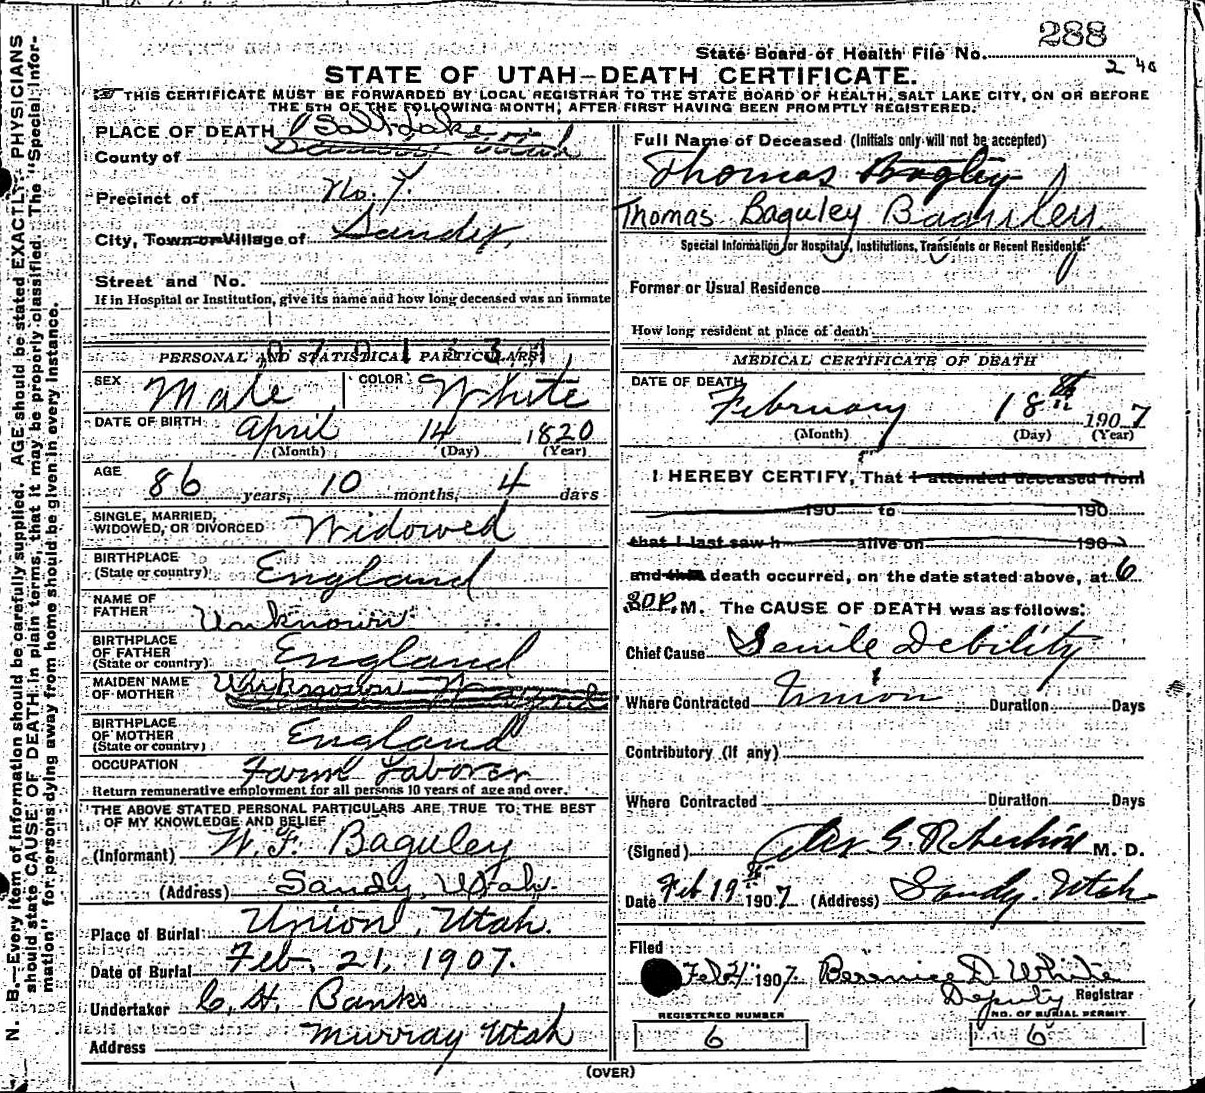 State Board of Health File No. 288
2 40
STATE OF UTAH—DEATH CERTIFICATE.
THIS CERTIFICATE MUST BE FORWARDED BY LOCAL REGISTRAR TO THE STATE BOARD OF HEALTH, SALT LAKE CITY, ON OR BEFORE
THE 5TH OF THE FOLLOWING MONTH, AFTER FIRST HAVING BEEN PROMPTLY REGISTERED.
N. B.—Every item of information should be carefully supplied. AGE should be stated EXACTLY. PHYSICIANS
should state CAUSE OF DEATH in plain terms, that it may be properly classified. The "Special Infor-
mation" for persons dying away from home should be given in every instance.
PLACE OF DEATH Salt Lake
County of Utah
Precinct of No. 7.
City, Town or Village of Sandy,
Street and No.
If in Hospital or Institution, give its name and how long deceased was an inmate
PERSONAL AND STATISTICAL PARTICULARS
SEX Male COLOR White
DATE OF BIRTH April 14 1820
(Month) (Day) (Year)
AGE 86 years, 10 months, 4 days
SINGLE, MARRIED,
WIDOWED, OR DIVORCED Widowed
BIRTHPLACE
(State or country) England
NAME OF
FATHER Unknown
BIRTHPLACE
OF FATHER
(State or country) England
MAIDEN NAME
OF MOTHER Unknown
BIRTHPLACE
OF MOTHER
(State or country) England
OCCUPATION Farm Laborer
Return remunerative employment for all persons 10 years of age and over.
THE ABOVE STATED PERSONAL PARTICULARS ARE TRUE TO THE BEST
OF MY KNOWLEDGE AND BELIEF
(Informant) W. F. Baguley
(Address) Sandy, Utah.
Place of Burial Union, Utah.
Date of Burial Feb. 21, 1907.
Undertaker C. H. Banks
Address Murray Utah
Full Name of Deceased (Initials only will not be accepted)
Thomas Bagley
Thomas Baguley Baguley.
Special Information for Hospitals, Institutions, Transients or Recent Residents:
Former or Usual Residence
How long resident at place of death
MEDICAL CERTIFICATE OF DEATH
DATE OF DEATH
February 18th 1907
(Month) (Day) (Year)
I HEREBY CERTIFY, That I attended deceased from
190 to 190
that I last saw h alive on 190
and that death occurred, on the date stated above, at 6
30 P. M. The CAUSE OF DEATH was as follows:
Chief Cause Senile Debility
Where Contracted Union Duration Days
Contributory (If any)
Where Contracted Duration Days
(Signed) M. D.
Date Feb 19th 1907 (Address) Sandy. Utah
Filed
Feb 21 1907 Berenice D. White
Deputy Registrar
REGISTERED NUMBER NO. OF BURIAL PERMIT
6 6
(OVER)